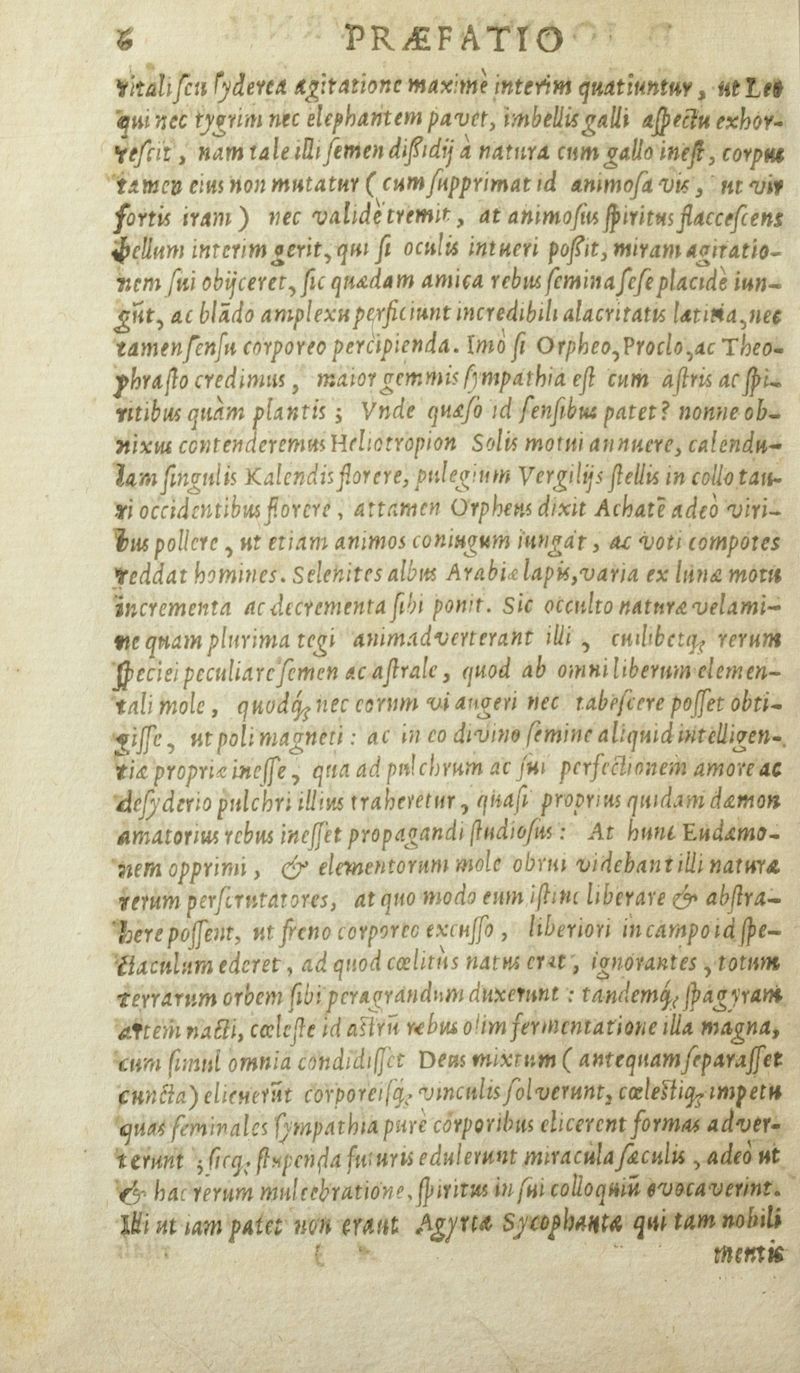 6 PRÆFATIO
vitali seu syderea agitatione maximè interim quatiuntur, ut Leo
qui nec tygrim nec elephantem pavet, imbellis galli aspectu exhor-
rescit, nam tale illi semen dißidij à natura cum gallo inest, corpus
tamen eius non mutatur (cum supprimat id animosa vis, ut vir
fortis iram) nec validè tremit, at animosus spiritus flaccescens
bellum interim gerit, qui si oculis intueri poßit, miram agitatio-
nem sui obijceret, sic quædam amica rebus semina sese placidè iun-
gũt, ac blãdo amplexu perficiunt incredibili alacritatis latina, nec
tamen sensu corporeo percipienda. Imò si Orpheo, Proclo, ac Theo-
phrasto credimus, maior gemmis sympathia est cum astris ac spi-
ritibus quàm plantis; Vnde quæso id sensibus patet? nonne ob-
nixus contenderemus Heliotropion Solis motui annuere, calendu-
lam singulis Kalendis florere, pulegium Vergilijs stellis in collo tau-
ri occidentibus florere, attamen Orpheus dixit Achatẽ adeò viri-
bus pollere, ut etiam animos coniugum iungat, ac voti compotes
reddat homines. Selenites albus Arabiæ lapis, varia ex lunæ motu
incrementa ac decrementa sibi ponit. Sic occulto naturæ velami-
ne quam plurima tegi animadverterant illi, cuilibetq; rerum
speciei peculiare semen ac astrale, quod ab omni liberum elemen-
tali mole, quodq; nec eorum vi augeri nec tabescere posset obti-
gisse, ut poli magneti: ac in eo divino semine aliquid intelligen-
tiæ propriæ inesse, qua ad pulchrum ac sui perfectionem amore ac
desyderio pulchri illius traheretur, quasi proprius quidam dæmon
amatorius rebus inesset propagandi studiosus: At hunc Eudæmo-
nem opprimi, & elementorum mole obrui videbant illi naturæ
rerum perscrutatores, at quo modo eum istinc liberare & abstra-
here possent, ut freno corporeo excusso, liberiori in campo id spe-
ctaculum ederet, ad quod cœlitùs natus erat, ignorantes, totum
terrarum orbem sibi peragrandum duxerunt: tandemq; spagyram
artem nacti, cœleste id astrũ rebus olim fermentatione illa magna,
cum simul omnia condidisset Deus mixtum (antequam separasset
cuncta) elicuerũt corporeisq; vinculis solverunt, cœlestiq; impetu
quas seminales sympathia purè corporibus elicerent formas adver-
terunt; sicq; stupenda futuris edulerunt miracula sæculis, adeò ut
& hac rerum mulcebratione, spiritus in sui colloquiũ evocaverint.
Illi ut iam patet non erant Agyrtæ Sycophantæ qui tam nobili
mentis